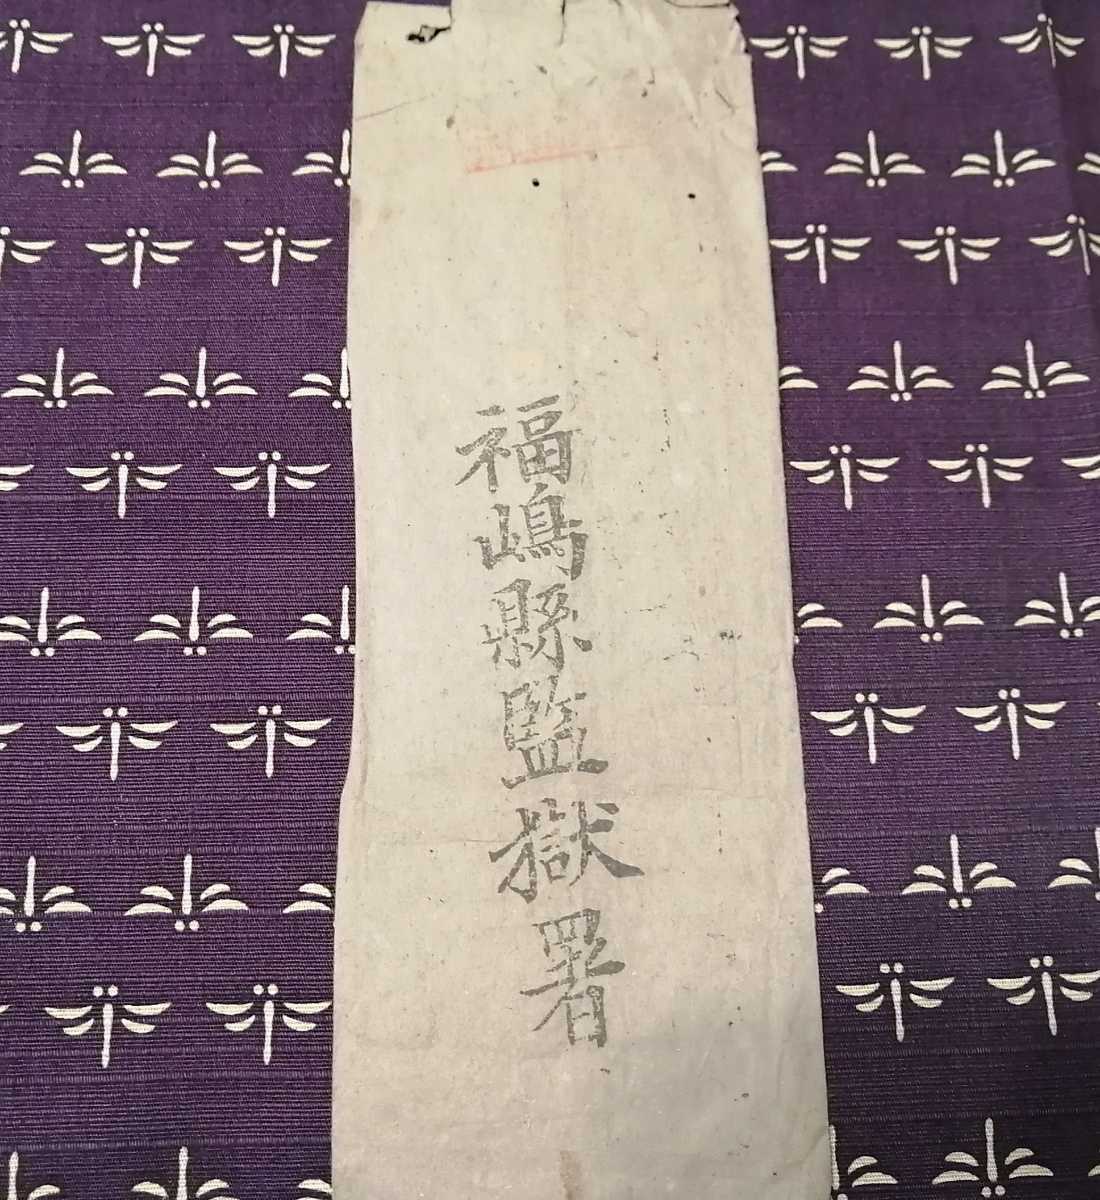 福嶋縣監獄署